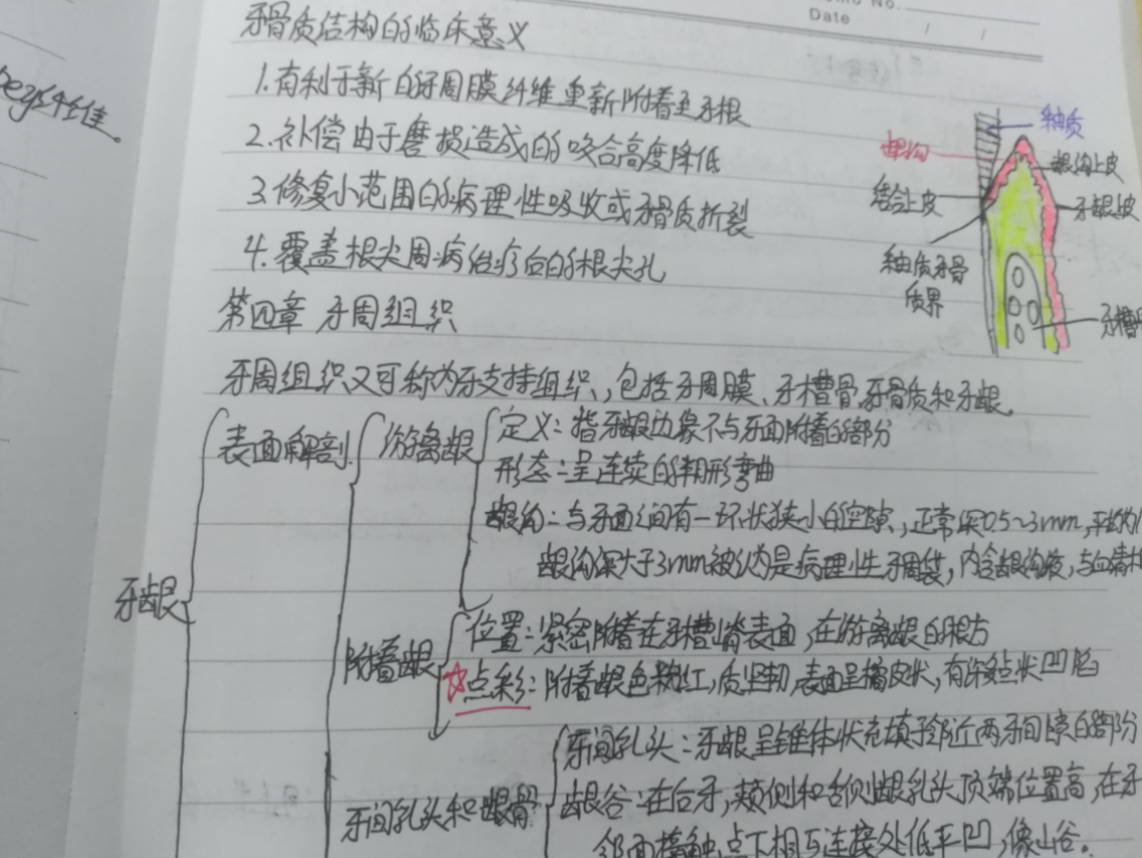 No.
Date
eg纤维。
牙骨质结构的临床意义
1.有利于新的牙周膜纤维重新附着至牙根
2.补偿由于磨损造成的咬合高度降低
3.修复小范围的病理性吸收或牙骨质折裂
4.覆盖根尖周病治疗后的根尖孔
釉质
龈沟
龈沟上皮
结合上皮
牙龈上皮
釉质牙骨
质界
牙槽骨
第四章 牙周组织
牙周组织又可称为牙支持组织，包括牙周膜、牙槽骨、牙骨质和牙龈。
牙龈
表面解剖
游离龈
定义：指牙龈边缘不与牙面附着的部分
形态：呈连续的半月形弯曲
龈沟：与牙面之间有一环状狭小的空隙，正常深0.5~3mm，平均
龈沟深大于3mm被认为是病理性牙周袋，内含龈沟液，与血清
附着龈
位置：紧密附着在牙槽嵴表面，在游离龈的根方
☆点彩：附着龈色粉红，质坚韧，表面呈橘皮状，有许多点状凹陷
牙间乳头和龈骨
牙间乳头：牙龈呈锥体状充填于邻近两牙间隙的部分
龈谷：在后牙，颊侧和舌侧龈乳头顶端位置高，在牙
邻面接触点下相互连接处低平凹，像山谷。